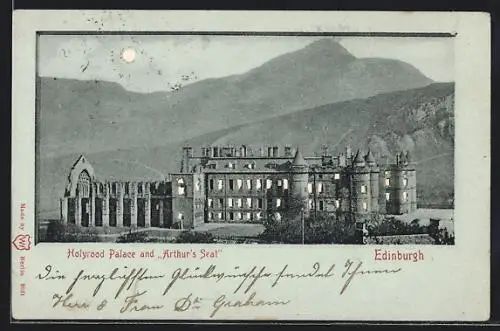 Holyrood Palace and „Arthur's Seat"
Edinburgh
Die herzlichsten Glückwünsche sendet Ihnen
Herr & Frau Dr Graham
Made by
Berlin